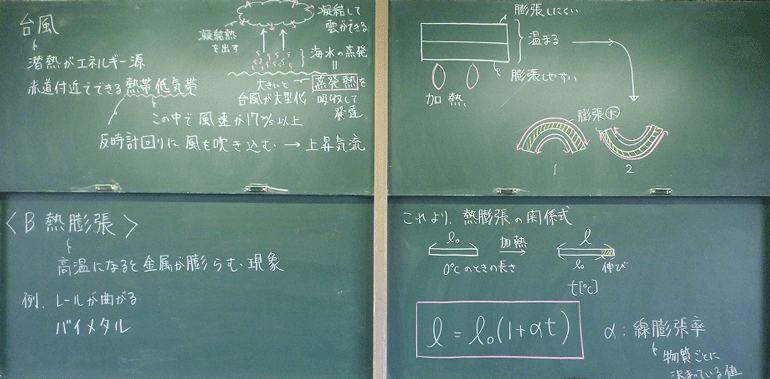 台風
潜熱がエネルギー源
赤道付近でできる熱帯低気帯
この中で風速が17m/s以上
反時計回りに風を吹き込む → 上昇気流
凝結して
雲ができる
凝結熱
を出す
海水の蒸発
=
蒸発熱を
吸収して
発達
大きいと
台風が大型化
膨張しにくい
温まる
膨張しやすい
加熱
膨張大
1
2
<B 熱膨張>
高温になると金属が膨らむ現象
例. レールが曲がる
バイメタル
これより、熱膨張の関係式
l₀
加熱
l
0℃のときの長さ
l₀ 伸び
t[℃]
l = l₀(1+αt)
α: 線膨張率
物質ごとに
決まっている値